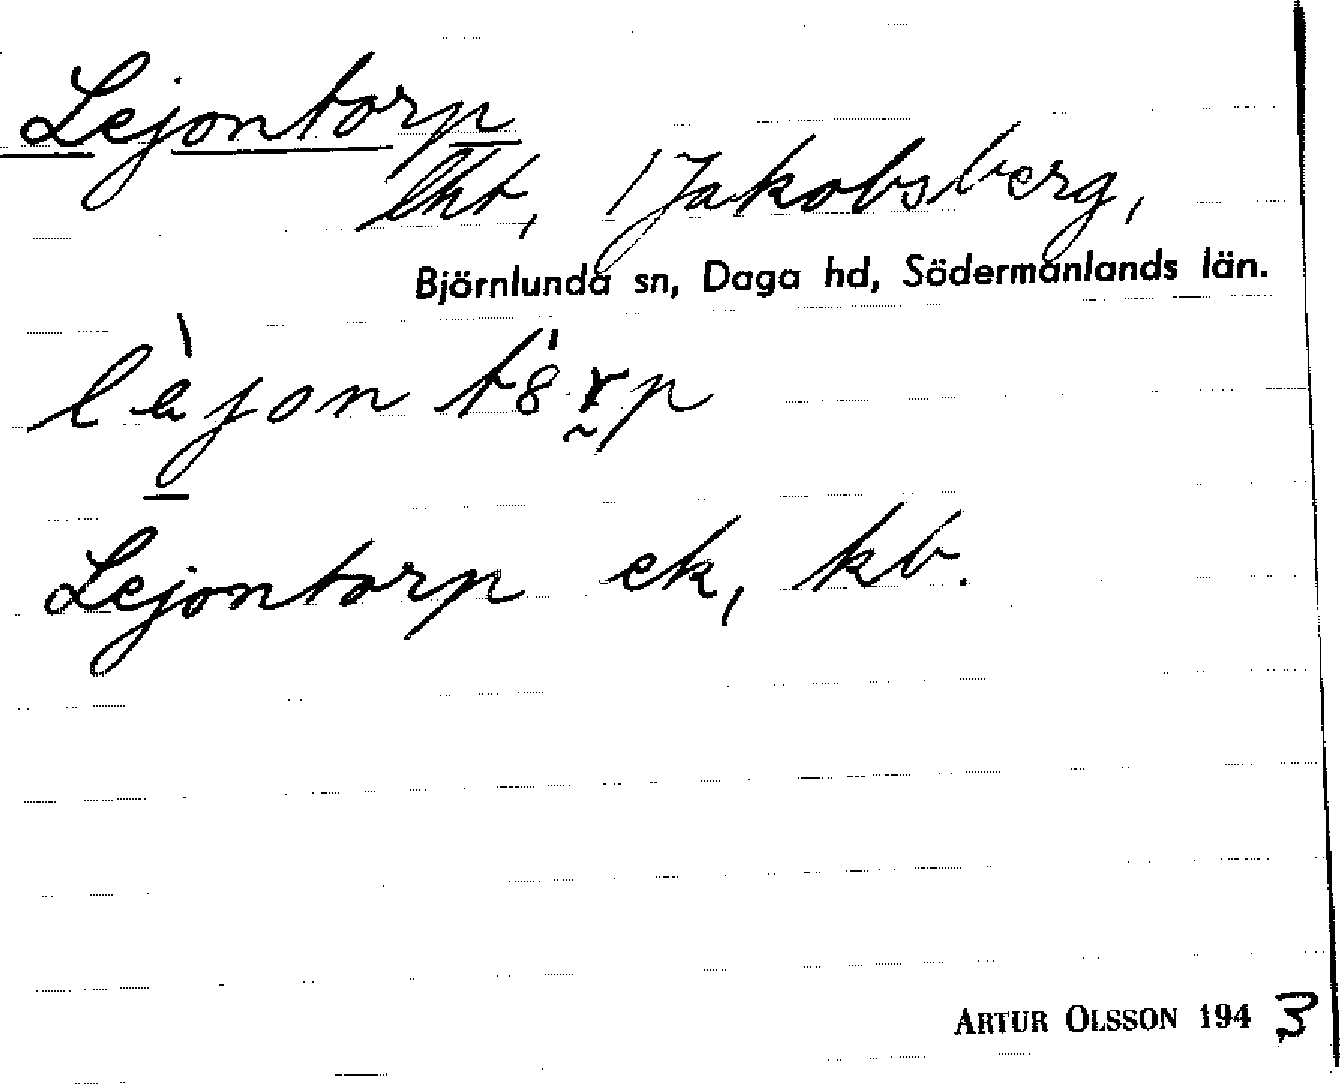 Lejontorp
lht, 1 Jakobsberg,
Björnlunda sn, Daga hd, Södermanlands län.
Lejontorp ek, kb.
ARTUR OLSSON 1943